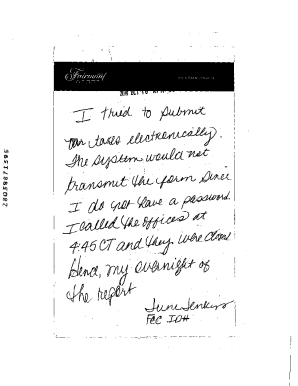 Fairmont
I tried to submit
our taxes electronically.
The system would not
transmit the form since
I do not have a password.
I called the offices at
4:45 CT and they were closed
Hence, my overnight of
the report
June Jenkins
FEC ID#